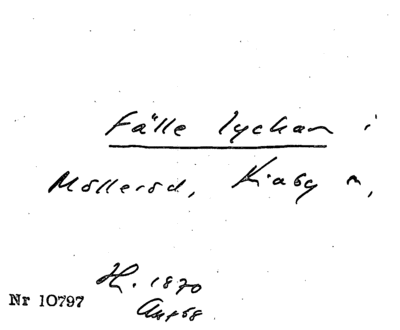 Fälle lyckan i
Mölleröd, Kiaby n,
H. 1870
Aug 68
Nr 10797